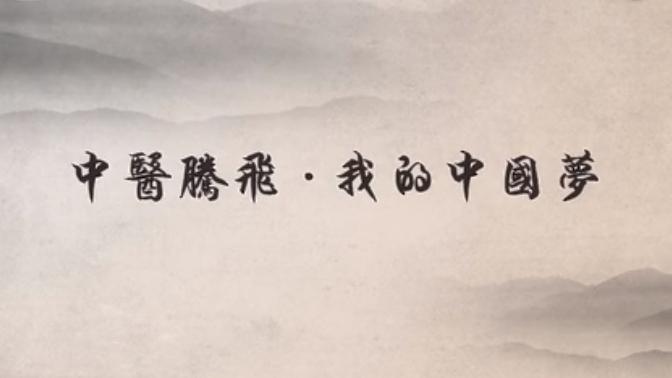 中醫騰飛·我的中國夢